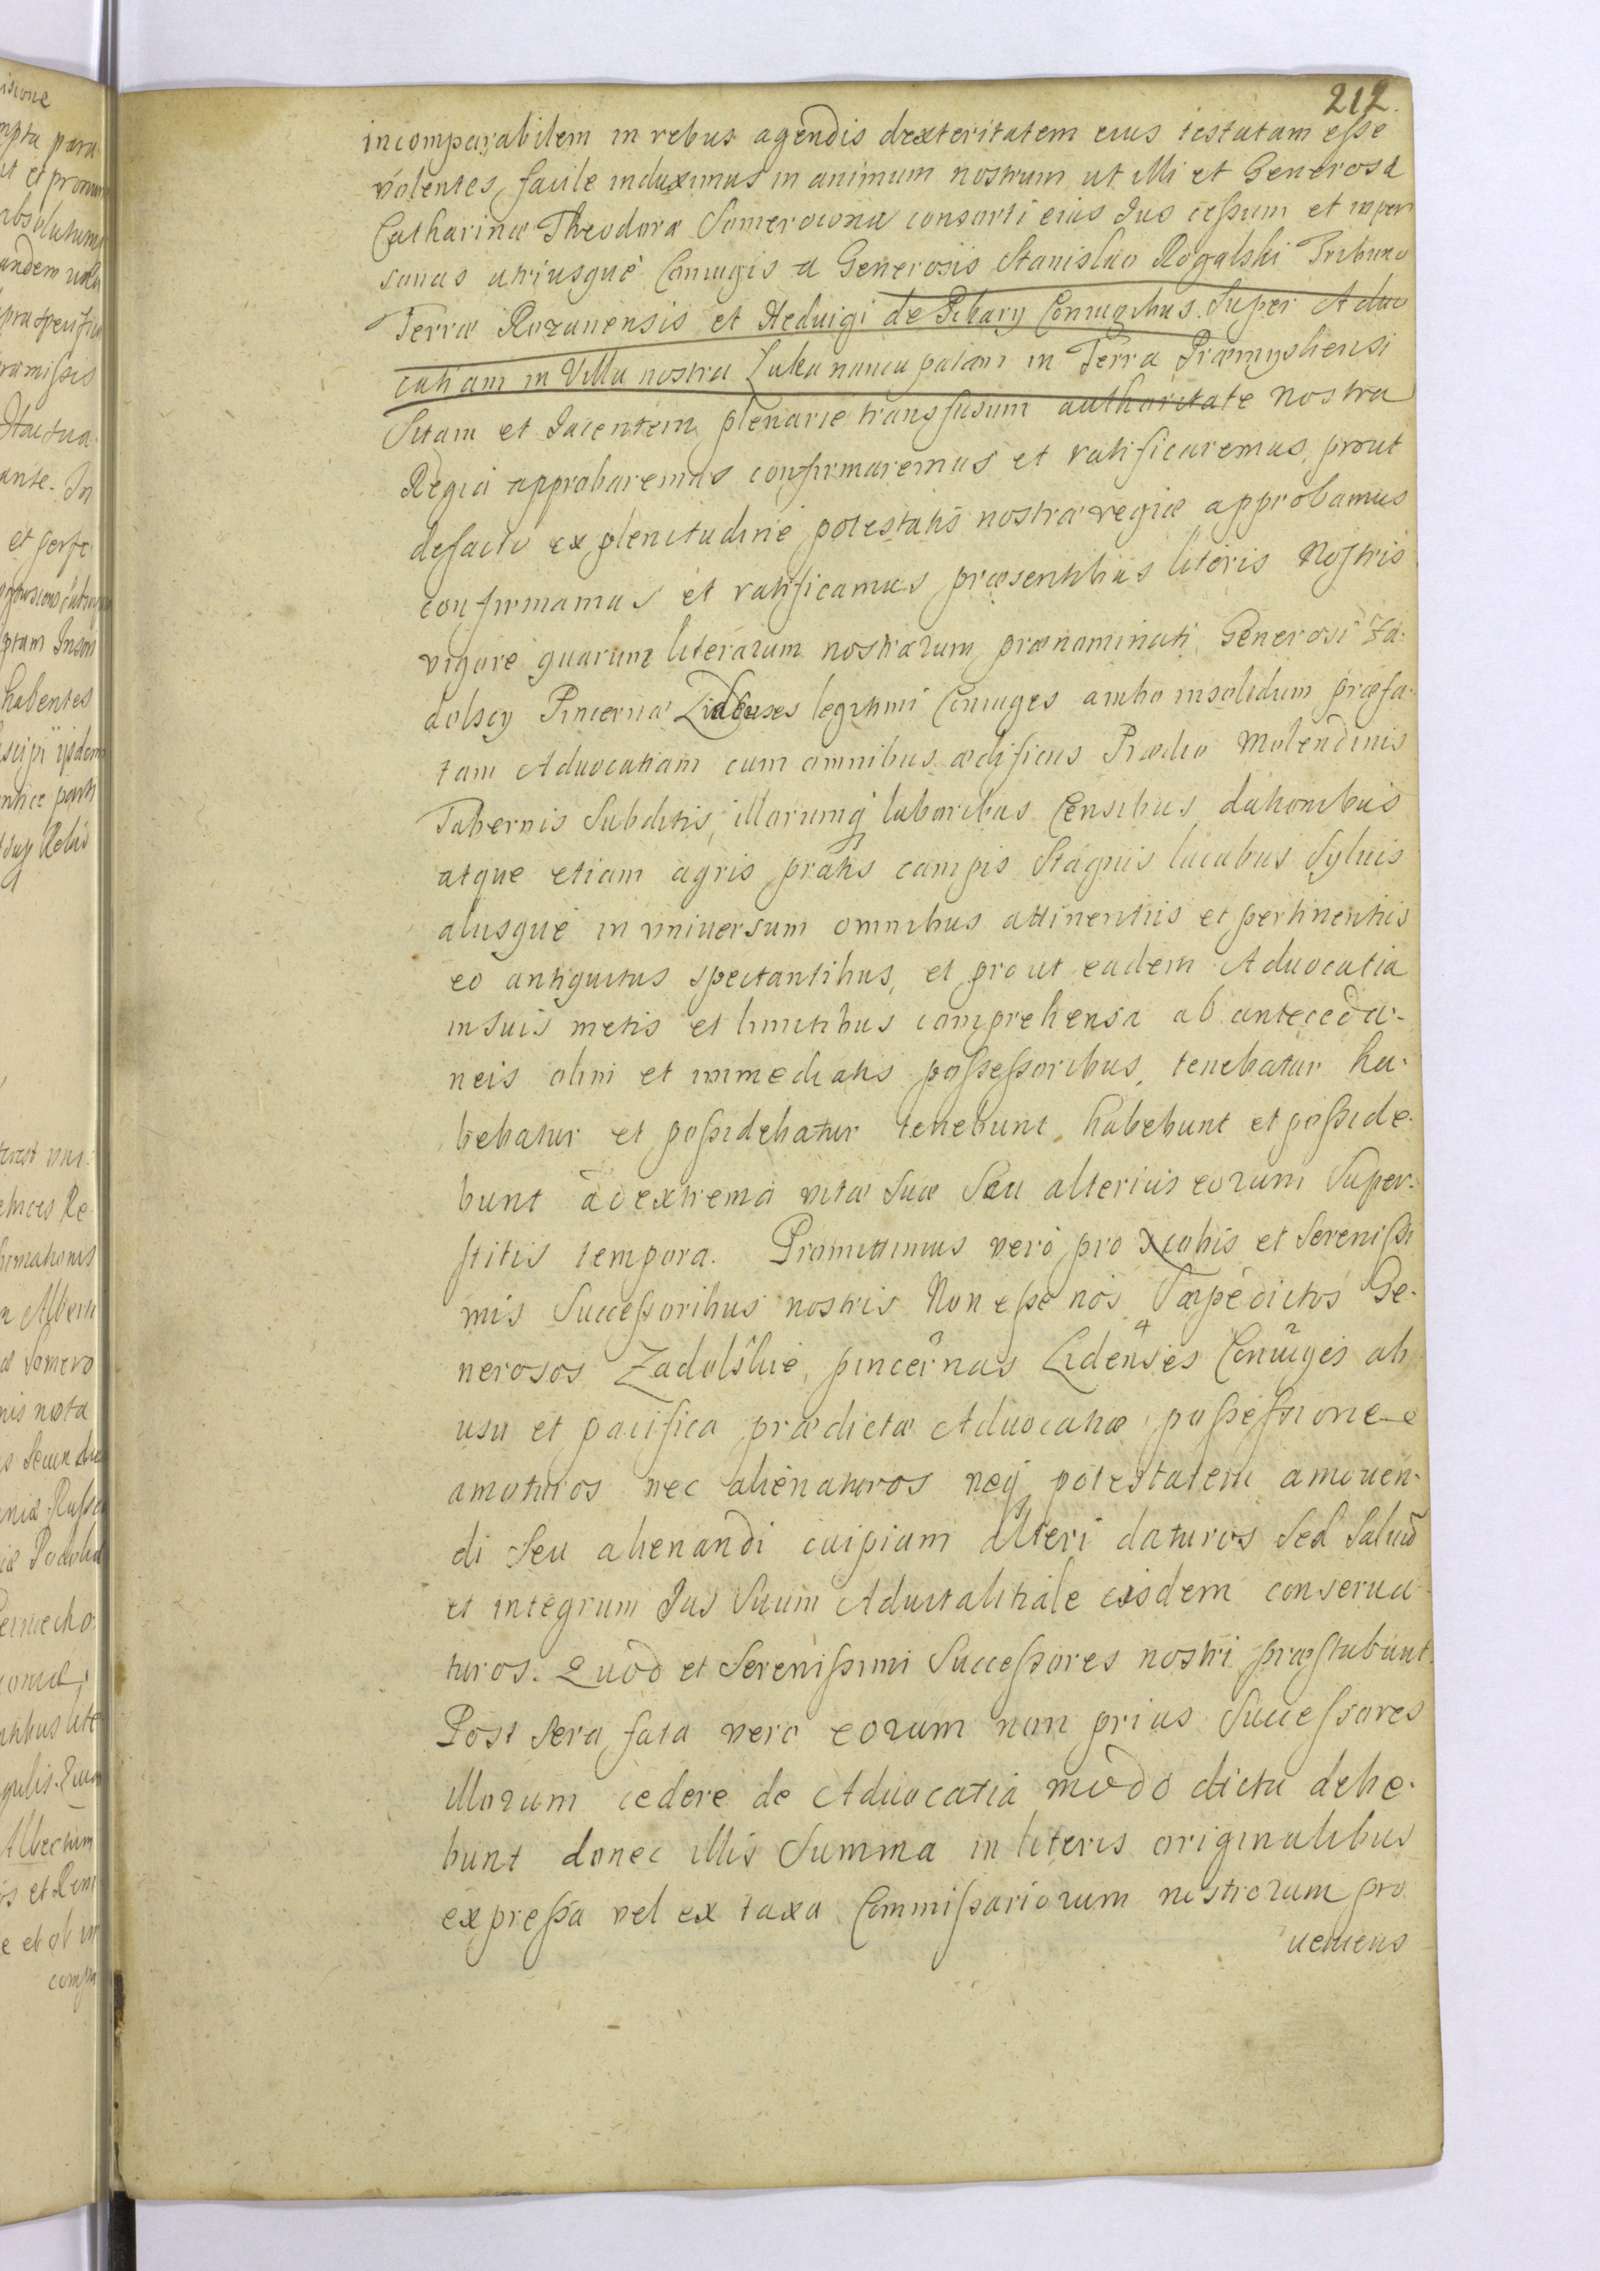 212.
incomparabilem in rebus agendis dexteritatem eius testatam eße
volentes, facile induximus in animum nostrum, ut illi et Generosa
Catharinæ Theodoræ Somerowna consorti eius Jus ceßum et in per
sonas utriusque Coniugis a Generosis Stanislao Rogalski Tribuno
Terræ Rozanensis et Heduigi de Pibary Coniugibus. Super Aduo
catiam in Villa nostra Luka nuncupatam in Terra Præmysliensi
Sitam et Jacentem plenarie transfusum authoritate nostra
Regia approbaremus confirmaremus et ratificaremus, prout
defacto ex plenitudine potestatis nostræ regiæ approbamus
confirmamus et ratificamus præsentibus literis Nostris
vigore quarum literarum nostrarum prænominati Generosi Za-
dolscy Pincernæ Lidenses legitimi Coniuges ambo insolidum præfa-
tam Aduocatiam cum omnibus ædificiis Prædio Molendinis
Tabernis Subditis, illorumq laboribus Censibus dationibus
atque etiam agris pratis campis Stagnis lacubus Syluis
aliisque in vniuersum omnibus attinentiis et pertinentiis
eo antiquitus spectantibus, et prout eadem Aduocatia
in suis metis et limitibus comprehensa ab anteceda-
neis olim et immediatis poßeßoribus, tenebatur ha-
bebatur et poßidebatur tenebunt, habebunt et poßide-
bunt ad extrema vitæ suæ Seu alterius eorum Super-
stitis tempora. Promittimus vero pro nobis et Serenißi
mis Succeßoribus nostris Non eße nos Sæpedictos Ge-
nerosos Zadolskie, pincernas Lidenses Coniuges ab
usu et pacifica prædictæ Aduocatiæ poßeßione
amoturos nec alienaturos neq potestatem amouen-
di Seu alienandi cuipiam alteri daturos Sed Saluũ
et integrum Jus Suum Aduitalitiale eisdem conserua-
turos. Quod et Sereniẞimi Succeßores nostri præstabunt.
Post sera fata vero eorum non prius Succeßores
illorum cedere de Aduocatia modo dicta debe-
bunt donec illis Summa in literis originalibus
expreßa vel ex taxa Commißariorum nostrorum pro
ueniens